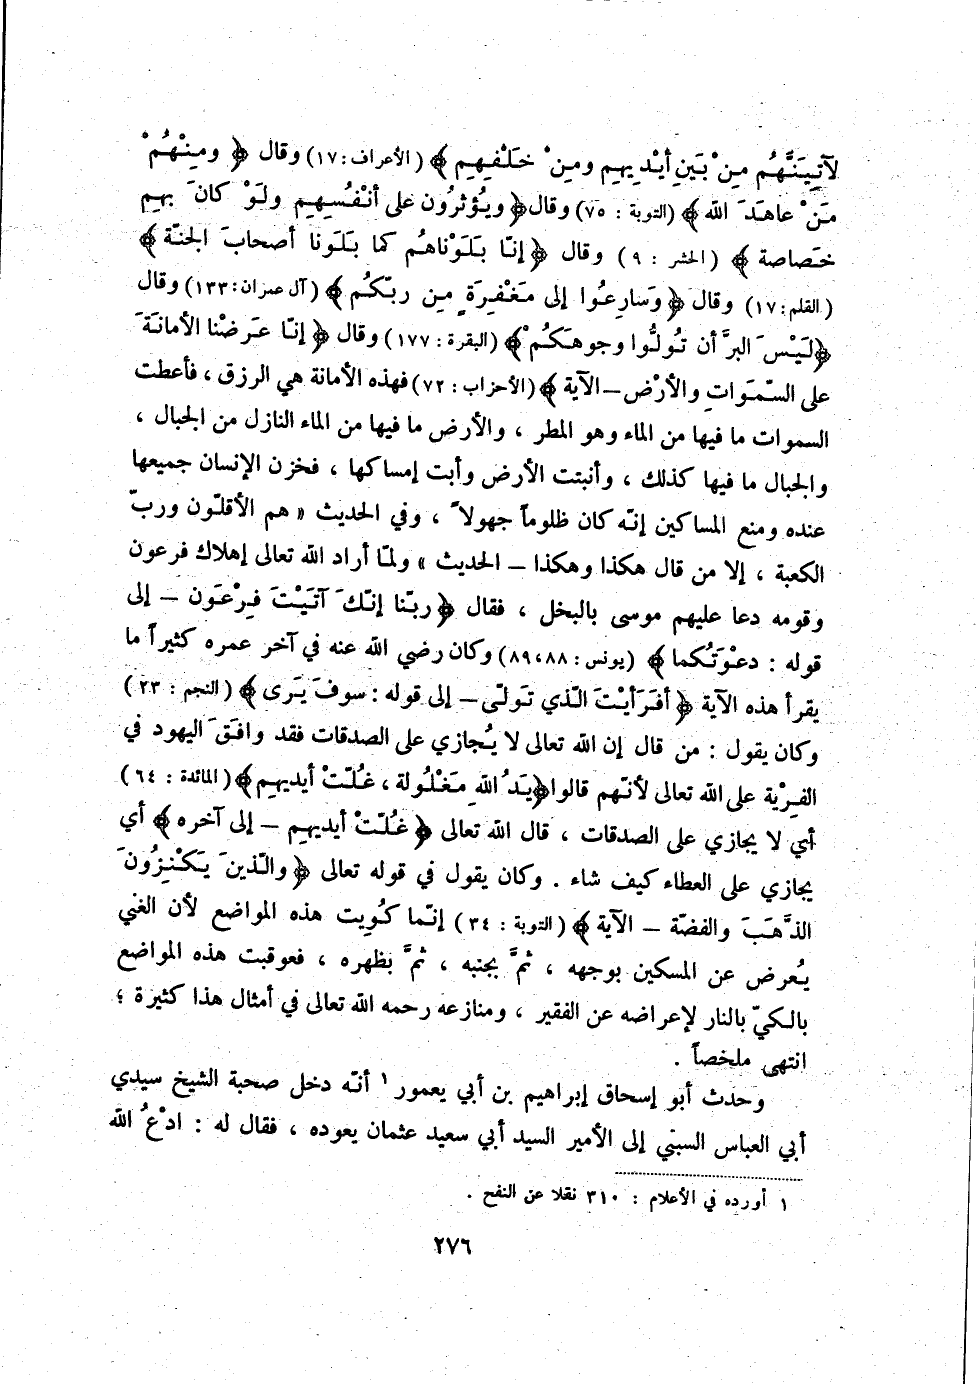 لآتِيَنَّهُم مِنْ بَيَنِ أيْدِيهِم ومِنْ خَلَفِهِم ﴾ (الأعراف:١٧) وقال ﴿ ومِنْهُمْ
مَنْ عاهَدَ الله ﴾ (التوبة : ٧٥) وقال﴿ ويُؤثرُون على أنْفُسِهِم ولَوْ كانَ بهِم
خَصاصة ﴾ (الحشر : ٩) وقال ﴿ إنّا بَلَوْناهُم كما بَلَونا أصحابَ الجنّة ﴾
(القلم:١٧) وقال ﴿ وَسارِعُوا إلى مَغْفِرَةٍ مِن ربّكُم ﴾ (آل عمران:١٣٣) وقال
﴿لَيْسَ البرَّ أن تُولُّوا وجوهَكُمْ﴾ (البقرة : ١٧٧) وقال ﴿ إنّا عَرضْنا الأمانَةَ
على السّمَواتِ والأرْض – الآية ﴾ (الأحزاب : ٧٢) فهذه الأمانة هي الرزق ، فأعطت
السموات ما فيها من الماء وهو المطر ، والأرض ما فيها من الماء النازل من الجبال ،
والجبال ما فيها كذلك ، وأنبتت الأرض وأبت إمساكها ، فخزن الإنسان جميعها
عنده ومنع المساكين إنّه كان ظلوماً جهولاً ، وفي الحديث « هم الأقلّون وربّ
الكعبة ، إلا من قال هكذا وهكذا – الحديث » ولمّا أراد الله تعالى إهلاك فرعون
وقومه دعا عليهم موسى بالبخل ، فقال ﴿ ربّنا إنّكَ آتَيْتَ فِرْعَون – إلى
قوله : دعوَتُكما ﴾ (يونس : ٨٨،٨٩) وكان رضي الله عنه في آخر عمره كثيراً ما
يقرأ هذه الآية ﴿ أفَرَأيْتَ الّذي تَولّى – إلى قوله : سوفَ يَرى ﴾ (النجم : ٢٣)
وكان يقول : من قال إن الله تعالى لا يُجازي على الصدقات فقد وافَقَ اليهود في
الفِرْية على الله تعالى لأنّهم قالوا﴿يَدُ اللهِ مَغْلُولة ، غُلّتْ أيديهِم﴾ (المائدة : ٦٤)
أي لا يجازي على الصدقات ، قال الله تعالى ﴿ غُلّتْ أيديهِم – إلى آخره ﴾ أي
يجازي على العطاء كيف شاء . وكان يقول في قوله تعالى ﴿ والّذينَ يَكْنِزُونَ
الذَّهَبَ والفضّة – الآية ﴾ (التوبة : ٣٤) إنّما كُويت هذه المواضع لأن الغني
يُعرض عن المسكين بوجهه ، ثمَّ بجنبه ، ثمَّ بظهره ، فعوقبت هذه المواضع
بالكيّ بالنار لإعراضه عن الفقير ، ومنازعه رحمه الله تعالى في أمثال هذا كثيرة ؛
انتهى ملخصاً .
وحدث أبو إسحاق إبراهيم بن أبي يعمور ١ أنّه دخل صحبة الشيخ سيدي
أبي العباس السبتي إلى الأمير السيد أبي سعيد عثمان يعوده ، فقال له : ادْعُ الله
١ أورده في الأعلام : ٣١٠ نقلا عن النفح .
٢٧٦